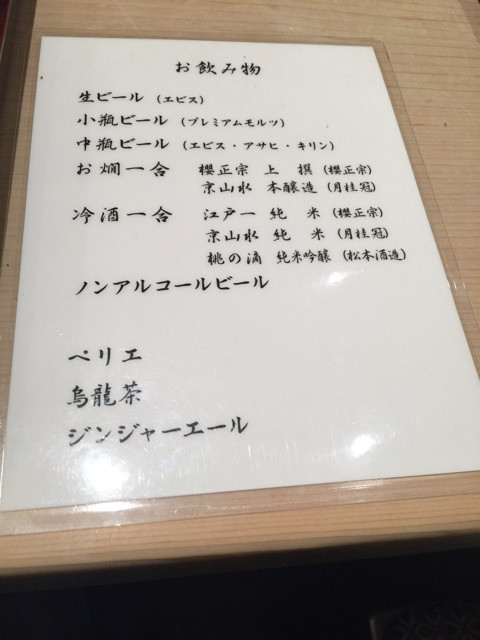 お飲み物
生ビール (エビス)
小瓶ビール (プレミアムモルツ)
中瓶ビール (エビス・アサヒ・キリン)
お燗一合 櫻正宗 上 撰 (櫻正宗)
京山水 本醸造 (月桂冠)
冷酒一合 江戸一 純 米 (櫻正宗)
京山水 純 米 (月桂冠)
桃の滴 純米吟醸 (松本酒造)
ノンアルコールビール
ペリエ
烏龍茶
ジンジャーエール